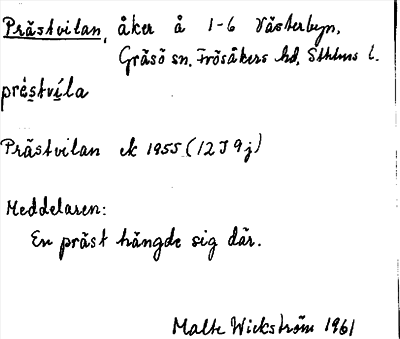 Prästvilan, åker å 1-6 Västerbyn,
Gräsö sn. Frösåkers hd, Sthlms l.
pré̱stvíla
Prästvilan ek 1955 (12J 9j)
Meddelaren:
En präst hängde sig där.
Malte Wickström 1961